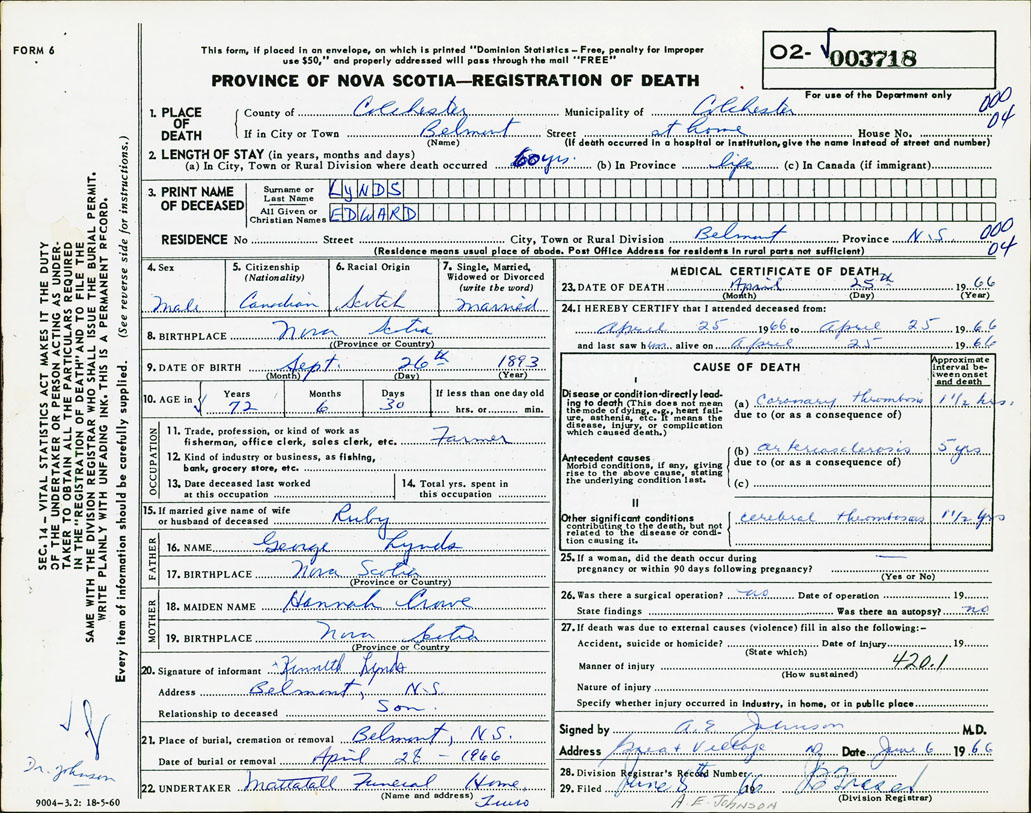 FORM 6
This form, if placed in an envelope, on which is printed "Dominion Statistics – Free, penalty for improper
use $50," and properly addressed will pass through the mail "FREE"
PROVINCE OF NOVA SCOTIA—REGISTRATION OF DEATH
O2- 003718
For use of the Department only
SEC. 14 – VITAL STATISTICS ACT MAKES IT THE DUTY
OF THE UNDERTAKER OR PERSON ACTING AS UNDER-
TAKER TO OBTAIN ALL THE PARTICULARS REQUIRED
IN THE "REGISTRATION OF DEATH" AND TO FILE THE
SAME WITH THE DIVISION REGISTRAR WHO SHALL ISSUE THE BURIAL PERMIT.
WRITE PLAINLY WITH UNFADING INK. THIS IS A PERMANENT RECORD.
Every item of information should be carefully supplied. (See reverse side for instructions.)
1. PLACE OF DEATH
County of Colchester Municipality of Colchester 000
04
If in City or Town Belmont Street at home House No.
(Name) (If death occurred in a hospital or institution, give the name instead of street and number)
2. LENGTH OF STAY (in years, months and days)
(a) In City, Town or Rural Division where death occurred 60 yrs. (b) In Province life (c) In Canada (if immigrant)
3. PRINT NAME OF DECEASED
Surname or Last Name LYNDS
All Given or Christian Names EDWARD
RESIDENCE No Street City, Town or Rural Division Belmont Province N.S. 000
04
(Residence means usual place of abode. Post Office Address for residents in rural parts not sufficient)
4. Sex Male
5. Citizenship (Nationality) Canadian
6. Racial Origin Scotch
7. Single, Married, Widowed or Divorced (write the word) Married
8. BIRTHPLACE Nova Scotia
(Province or Country)
9. DATE OF BIRTH Sept. 26th 1893
(Month) (Day) (Year)
10. AGE in Years 72 Months 6 Days 30 If less than one day old hrs. or min.
OCCUPATION
11. Trade, profession, or kind of work as
fisherman, office clerk, sales clerk, etc. Farmer
12. Kind of industry or business, as fishing,
bank, grocery store, etc.
13. Date deceased last worked
at this occupation
14. Total yrs. spent in
this occupation
15. If married give name of wife
or husband of deceased Ruby
FATHER
16. NAME George Lynds
17. BIRTHPLACE Nova Scotia
(Province or Country)
MOTHER
18. MAIDEN NAME Hannah Crowe
19. BIRTHPLACE Nova Scotia
(Province or Country
20. Signature of informant Kenneth Lynds
Address Belmont, N.S.
Relationship to deceased Son.
21. Place of burial, cremation or removal Belmont, N.S.
Date of burial or removal April 28 - 1966
22. UNDERTAKER Mattatall Funeral Home,
(Name and address) Truro
MEDICAL CERTIFICATE OF DEATH
23. DATE OF DEATH April 25th 1966
(Month) (Day) (Year)
24. I HEREBY CERTIFY that I attended deceased from:
April 25 1966 to April 25 1966
and last saw him alive on April 25 1966
CAUSE OF DEATH
Approximate interval between onset and death
I
Disease or condition directly lead-
ing to death (This does not mean
the mode of dying, e.g., heart fail-
ure, asthenia, etc. It means the
disease, injury, or complication
which caused death.)
(a) coronary thrombosis 1 1/2 hrs.
due to (or as a consequence of)
Antecedent causes
Morbid conditions, if any, giving
rise to the above cause, stating
the underlying condition last.
(b) arteriosclerosis 5 yrs
due to (or as a consequence of)
(c)
II
Other significant conditions
contributing to the death, but not
related to the disease or condi-
tion causing it.
cerebral thrombosis 1 1/2 yrs
25. If a woman, did the death occur during
pregnancy or within 90 days following pregnancy? —
(Yes or No)
26. Was there a surgical operation? no Date of operation 19
State findings Was there an autopsy? no
27. If death was due to external causes (violence) fill in also the following:–
Accident, suicide or homicide? Date of injury 19
(State which)
Manner of injury 420.1
(How sustained)
Nature of injury
Specify whether injury occurred in industry, in home, or in public place
Signed by A.E. Johnson M.D.
Address Great Village NS Date June 6 1966
28. Division Registrar's Record Number
29. Filed June 8th 1966
(Division Registrar)
A. E. JOHNSON
Dr. Johnson
9004–3.2: 18-5-60